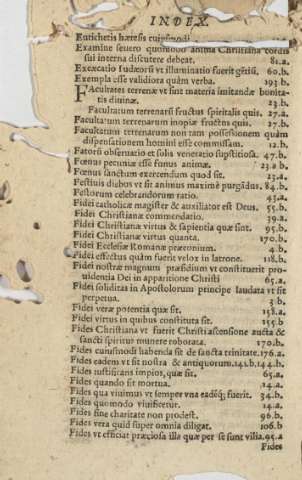 INDEX.
Eutichetis hæresis cuiusmodi
Examine seuero quomodo anima Christiana cordis
sui interna discutere debeat. 81.a.
Excæcatio Iudæorū vt illuminatio fuerit gētiū. 60.b.
Exempla esse validiora quàm verba. 193.b.
Facultates terrenæ vt sint materia imitandæ bonita-
tis diuinæ. 23.b.
Facultatum terrenarū fructus spiritalis quis. 27.a.
Facultatum terrenarum inopiæ fructus quis. 27.b.
Facultatum terrenarum non tam possessionem quàm
dispensationem homini esse commissam. 12.b.
Fatorū obseruatio et solis veneratio supstitiosa. 47.b.
Fœnus pecuniæ esse funus animæ. 23.a b.
Fœnus sanctum exercendum quod sit. 23.a.
Festiuis diebus vt sit animus maximè purgādus. 84.b.
Festorum celebrandorum ratio. 43.a.
Fidei catholicæ magister & auxiliator est Deus. 55.b.
Fidei Christianæ commendatio. 39.a.
Fidei Christianæ virtus & sapientia quæ sint. 95.b.
Fidei Christianæ virtus quanta. 170.b.
Fidei Ecclesiæ Romanæ præconium. 4.b.
Fidei effectus quàm fuerit velox in latrone. 118.b.
Fidei nostræ magnum præsidium vt constituerit pro-
uidentia Dei in apparitione Christi 65.a.
Fidei soliditas in Apostolorum principe laudata vt sit
perpetua. 3.b.
Fidei veræ potentia quæ sit. 158.a.
Fidei virtus in quibus constituta sit. 155.b
Fides Christiana vt fuerit Christi ascensione aucta &
sancti spiritus munere roborata 170.b.
Fides cuiusmodi habenda sit de sancta trinitate. 176.a.
Fides eadem vt sit nostra & antiquorum. 141.b. 144.b.
Fides iustificans impios, quæ sit. 65.a.
Fides quando sit mortua. 14.a.
Fides qua viuimus vt semper vna eadēq; fuerit. 34.b.
Fides quomodo viuificetur. 14.a.
Fides sine charitate non prodest. 96.b.
Fides vera quid super omnia diligat. 106.b
Fides vt efficiat præciosa illa quæ per se sunt vilia. 95.a
Fides